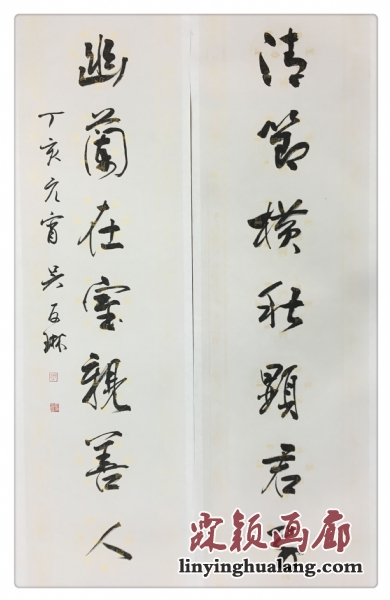 清節橫秋顯君
幽蘭在室親善人
丁亥元宵 吴友琳
霖颖画廊
linyinghualang.com